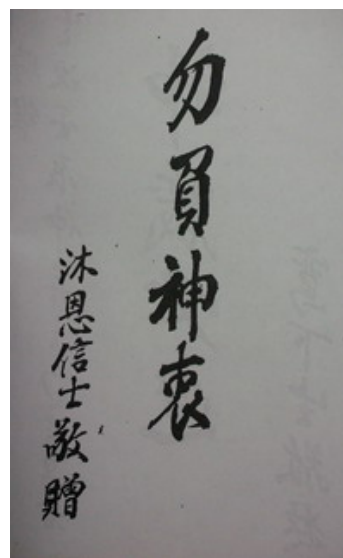 勿負神衷
沐恩信士敬贈